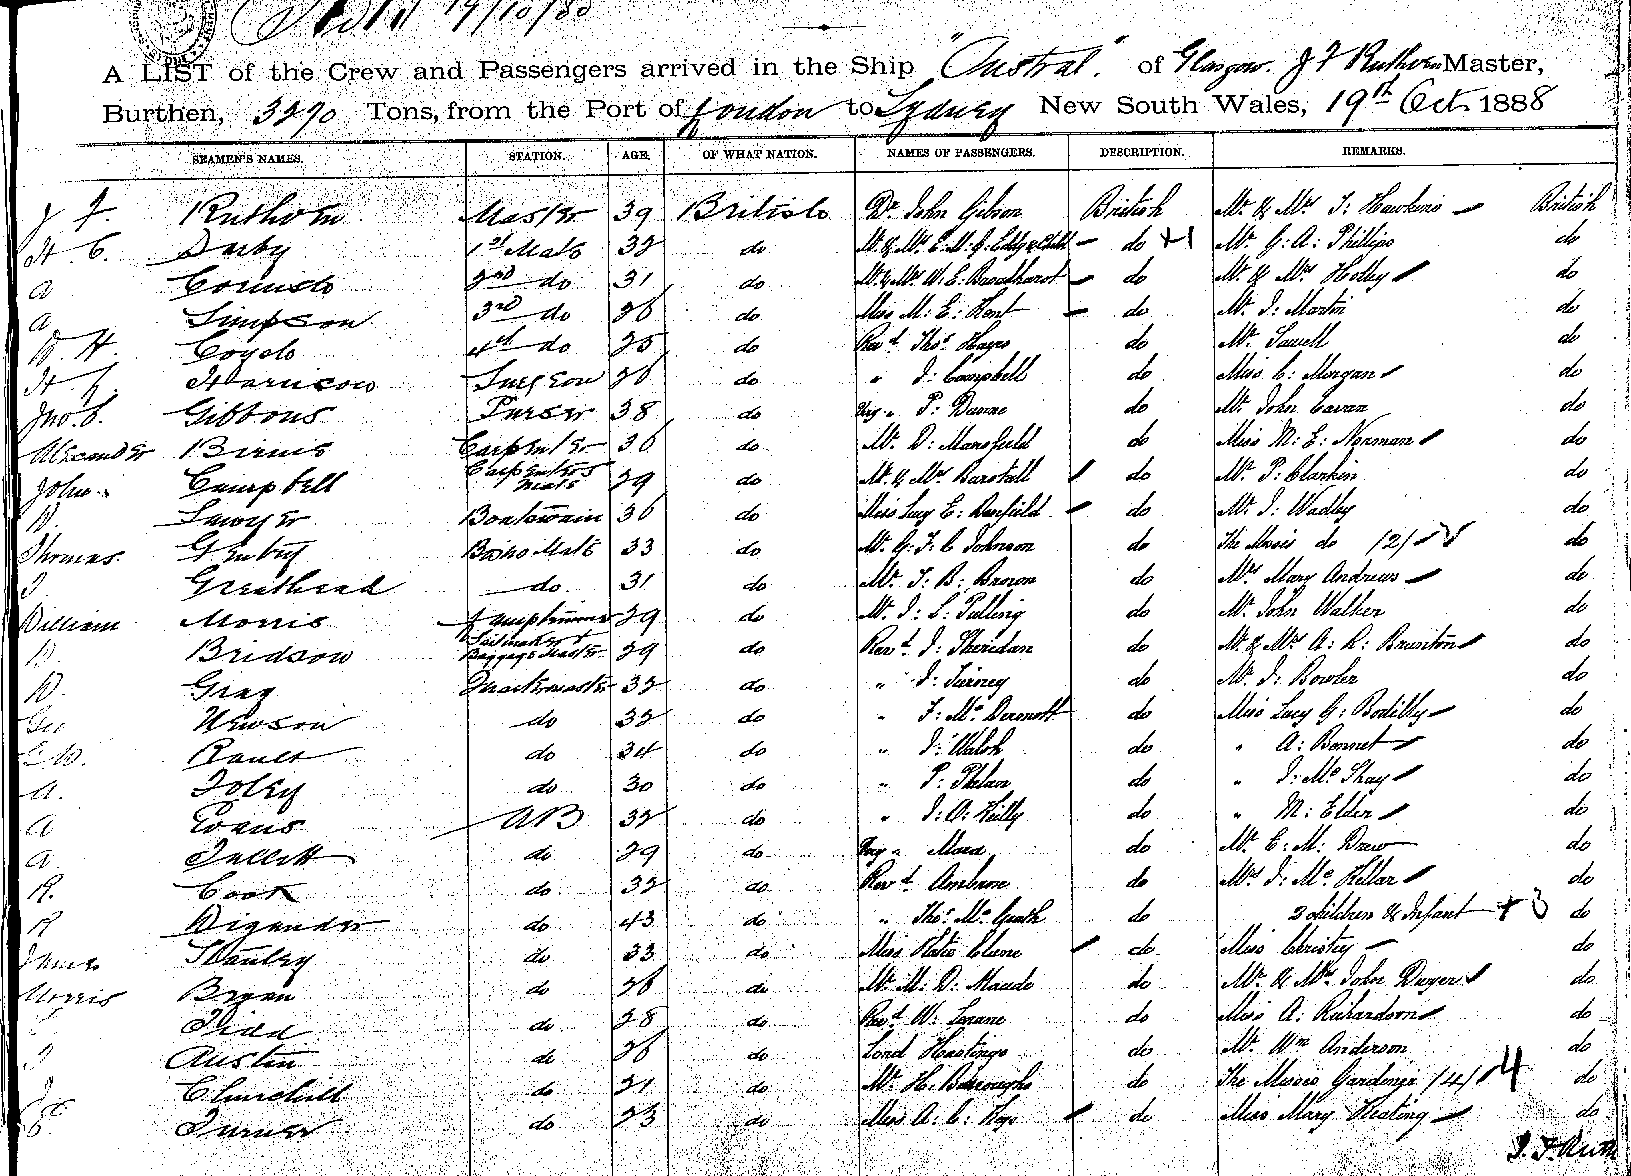 19/10/88
A LIST of the Crew and Passengers arrived in the Ship "Austral" of Glasgow. J F Ruthven Master,
Burthen, 3290 Tons, from the Port of London to Sydney New South Wales, 19th Oct 1888
SEAMEN'S NAMES. STATION. AGE. OF WHAT NATION. NAMES OF PASSENGERS. DESCRIPTION. REMARKS.
J F. Ruthven Master 39 British Dr John Gibson British Mr & Mrs J: Hawkins British
H C. Darby 1st Mate 32 do Mr & Mrs E. M. G. Eddy & Child do +1 Mr G: A: Phillips do
A Cornish 2nd do 31 do Mr & Mrs W. E. Broadhurst do Mr & Mrs Holby do
A Simpson 3rd do 26 do Miss M: E: Kent do Mr J: Martin do
W. H. Coyde 4th do 25 do Revd Thos Hayes do Mr Sawell do
H. J. Harrison Surgeon 26 do " J: Campbell do Miss C: Morgan do
Jno. C. Gibbons Purser 38 do Very " P: Dunne do Mr John Cavan do
Alexander Birnis Carpenter 36 do Mr D: Mansfield do Miss M: E: Norman do
John Campbell Carpenters Mate 29 do Mr & Mrs Barstall do Mr P: Clarkin do
W. Sawyer Boatswain 36 do Miss Lucy E: Banfield do Mr J: Wadby do
Thomas Gentry Bosns Mate 33 do Mr G: F: C Johnson do The Misses do /2/ do
J Greathead do 31 do Mr J: B: Brown do Mrs Mary Andrews do
William Morris Lamptrimmer 29 do Mr J: S: Palling do Mr John Walker do
W. Bridson Sailmaker & Baggage Master 29 do Revd J: Sheridan do Mr & Mrs A: R: Brunton do
W. Gray Quartermaster 32 do " J: Tierney do Mr J: Bowler do
Geo Newson do 32 do " J: McDermott do Miss Lucy G: Bodilly do
E W. Rault do 34 do " J: Walsh do " A: Bennet do
A. Foley do 30 do " P: Phelan do " J: McShay do
A Evans AB 32 do " J: A: Reilly do " M: Elder do
A Tullett do 29 do Very " Mora do Mr E: M: Drew do
R. Cook do 32 do Revd Ambrose do Mrs J: McKellar do
R Digander do 43 do " Thos McGrath do 2 children & Infant + 3 do
James Stanley do 33 do Miss Katie Clune do Miss Christey do
Morris Bryan do 26 do Mr M: D: Maude do Mr & Mrs John Dwyer do
Kidd do 28 do Revd W: Lorane do Miss A: Richardson do
J Austin do 26 do Lord Hastings do Mr Wm Anderson do
J Churchill do 21 do Mr H. Burroughs do The Misses Gardiner /4/ 4 do
E. Turner do 23 do Miss A: C: Hays do Miss Mary Keating do
J. F. Ruth